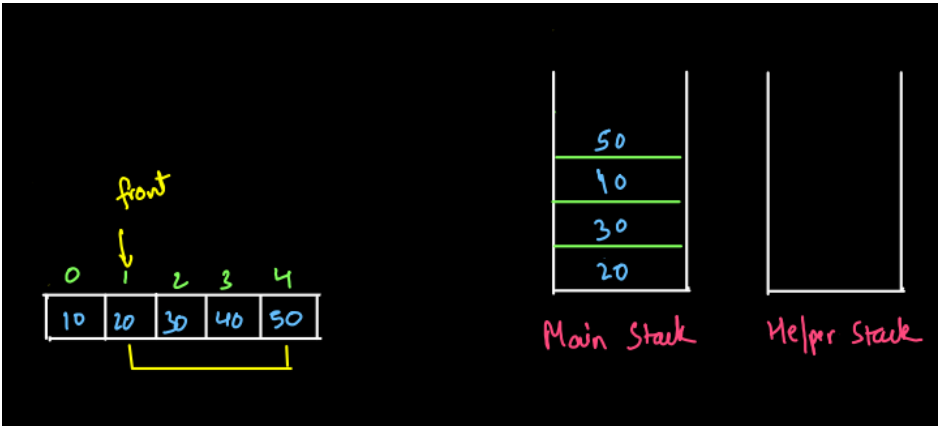 front
0 1 2 3 4
10 20 30 40 50
50
40
30
20
Main Stack
Helper Stack